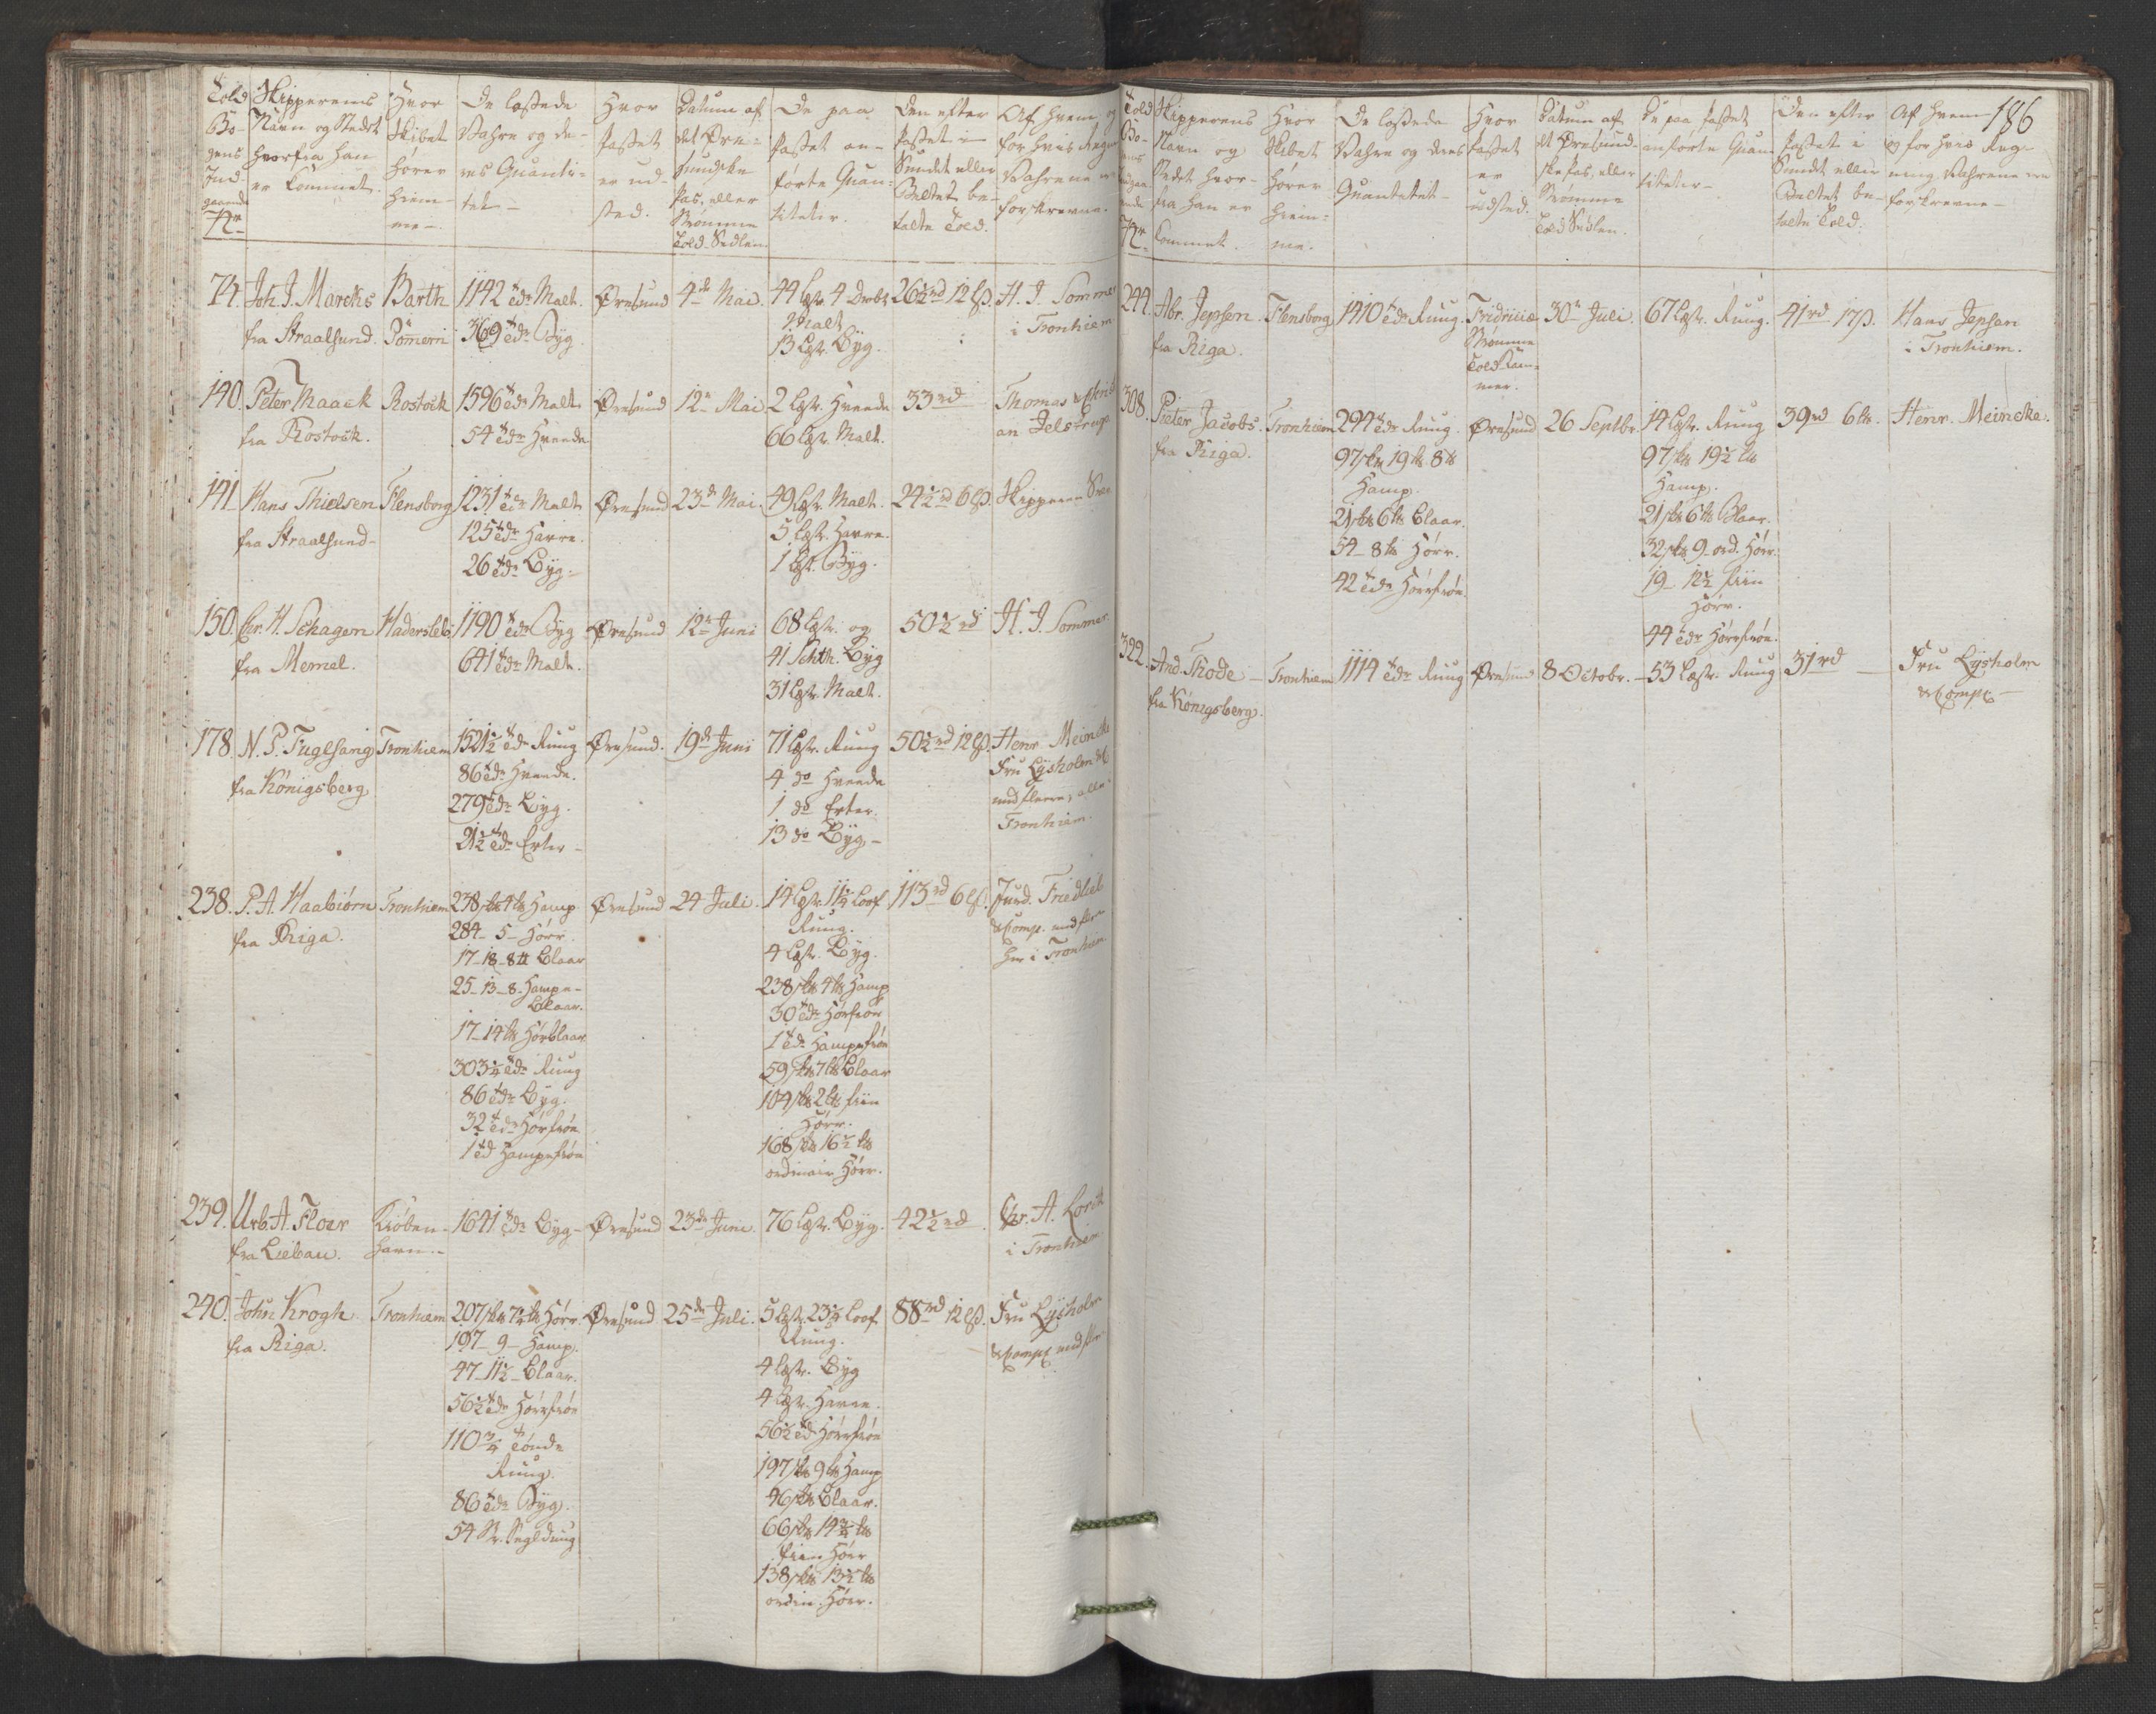 Told Bogens Indgaaende No
Skipperens Navn og Stedet hvorfra han er kommet.
Hvor Skibet hører hiemme.
De lossede Vahre og deres Quantitet
Hvor Passet er udsted.
Datum af det Øresundske Pas, eller Strømme Told-Sedlen.
De paa Passet anførte Quantiteter.
Den efter Passet i Sundet eller Beltet betalte Told.
Af hvem og for hvis Regning Vahrene ere forskrevne.
74. Joh. J. Marcks
fra Straalsund.
Barth
Pomern
1142 tdr Malt.
369 tdr Byg
Øresund
4de Mai.
44 Lgst. 4 Drbt
Malt
13 Lgst. Byg.
26½ rd 12 ß.
H. J. Sommer
i Tronhiem
140. Peter Maack
fra Rostock.
Rostock
1596 tdr Malt.
54 tdr Hvede
Øresund
12te Mai
2 Lgst. Hvede
66 Lgst. Malt.
33 rd
Thomas &
an Jelstrup
141. Hans Thielsen
fra Straalsund
Flensborg
1231 tdr Malt
125 tdr Havre.
26 tdr Byg.
Øresund
23de Mai.
49 Lgst. Malt.
5 Lgst. Havre.
1 Lgst. Byg.
24½ rd 6 ß.
Skipperen
150. Chr. H. Schagen
fra Memel.
Hadersleb
1190 tdr Byg
641 tdr Malt.
Øresund
12te Juni
68 Lgst. og
41 Schth. Byg
31 Lgst. Malt.
50½ rd
H. J. Sommer
178. N. P. Fuglsang
fra Königsberg
Tronhiem
1521½ tdr Rug
86 tdr Hvede.
279 tdr Byg.
21½ tdr Erter
Øresund.
19de Juni
71 Lgst. Rug
4 do Hvede
1 do Erter.
13 do Byg
50½ rd 12 ß.
Henr. Meincke
Fru Lysholm & C
med flere, alle i
Tronhiem.
238. P. A. Haabiørn
fra Riga.
Tronhiem
238 skt 4 lt Hamp
284 - 5 - Hørr.
17 - 18 - 8 tt Blaar
25 - 13 - 8 - Hampe-
Blaar.
17 - 14 lt Hørblaar
303¼ tdr Rug
86 tdr Byg.
32 tdr Hørfrøe
1 td Hampefrøe
Øresund
24 Juli.
14 Lgst. 11½ Loof
Rug.
4 Lgst. Byg.
238 skt 4 lt Hamp
30 tdr Hørfrøe
1 tdr Hampefrøe
59 skt 7 lt Blaar
104 skt 2 lt fiin
Hørr.
168 skt 16½ lt
ordinair Hørr.
113 rd 6 ß.
Jurd. Friedlieb
& Comp. med flere
her i Tronhiem.
239. Urb. A. Floer
fra Liebau.
Kiøben-
havn.
1641 tdr Byg
Øresund
23de Juni.
76 Lgst. Byg.
42½ rd
Chr. A. Lorck
i Tronhiem
240. John Krogh
fra Riga.
Tronhiem
207 skt 7½ lt Hørr
197 - 9 - Hamp.
47 - 11½ - Blaar.
56½ tdr Hørrfrøe
110¾ Tønde
Rug.
86 tdr Byg.
54 St. Segldug
Øresund
25de Juli.
5 Lgst. 23¼ Loof
Rug.
4 Lgst. Byg
4 Lgst. Havre.
56½ td Hørrfrøe
197 skt 9 lt Hamp
46 skt Blaar.
66 skt 14¾ lt
fiin Hørr
138 skt 13½ lt
ordin. Hørr.
88 rd 12 ß.
Fru Lysholm
& Comp. med flere
186
Told Bogens Indgaaende No
Skipperens Navn og Stedet hvorfra han er kommet.
Hvor Skibet hører hiemme.
De lossede Vahre og deres Quantitet
Hvor Passet er udsted.
Datum af det Øresundske Pas, eller Strømme Told Sedlen.
De paa Passet anførte Quantiteter
Den efter Passet i Sundet eller Beltet betalte Told.
Af hvem og for hvis Regning Vahrene ere forskrevne
244. Abr. Jepsen
fra Riga.
Flensborg
1410 tdr Rug.
Fridriciæ
Strømme
Told Kam-
mer.
30te Juli.
67 Lgst. Rug.
41 rd 17 ß.
Hans Jepsen
i Tronhiem.
308. Pieter Jacobs.
fra Riga.
Tronhiem
294 tdr Rug.
97 skt 19 lt 8 tt
Hamp.
21 skt 6 lt Blaar.
54 - 8 lt Hørr.
42 tdr Hørrfrøe.
Øresund
26 Septbr.
14 Lgst. Rug
97 skt 19½ lt
Hamp.
21 skt 6 lt Blaar.
32 skt 9 - ord. Hørr.
19 - 12½ fiin
Hørr.
44 tdr Hørrfrøe.
39 rd 6 lß.
Henr. Meincke.
322. And. Thode
fra Königsberg.
Tronhiem
1114 tdr Rug
Øresund
8 Octobr.
53 Lgst. Rug
31 rd
Fru Lysholm
& Comp.